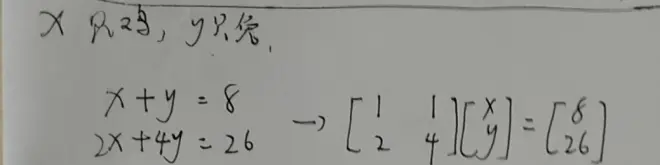 x 只鸡, y只兔.
x + y = 8
2x + 4y = 26 → [1 1 2 4][x y] = [8 26]